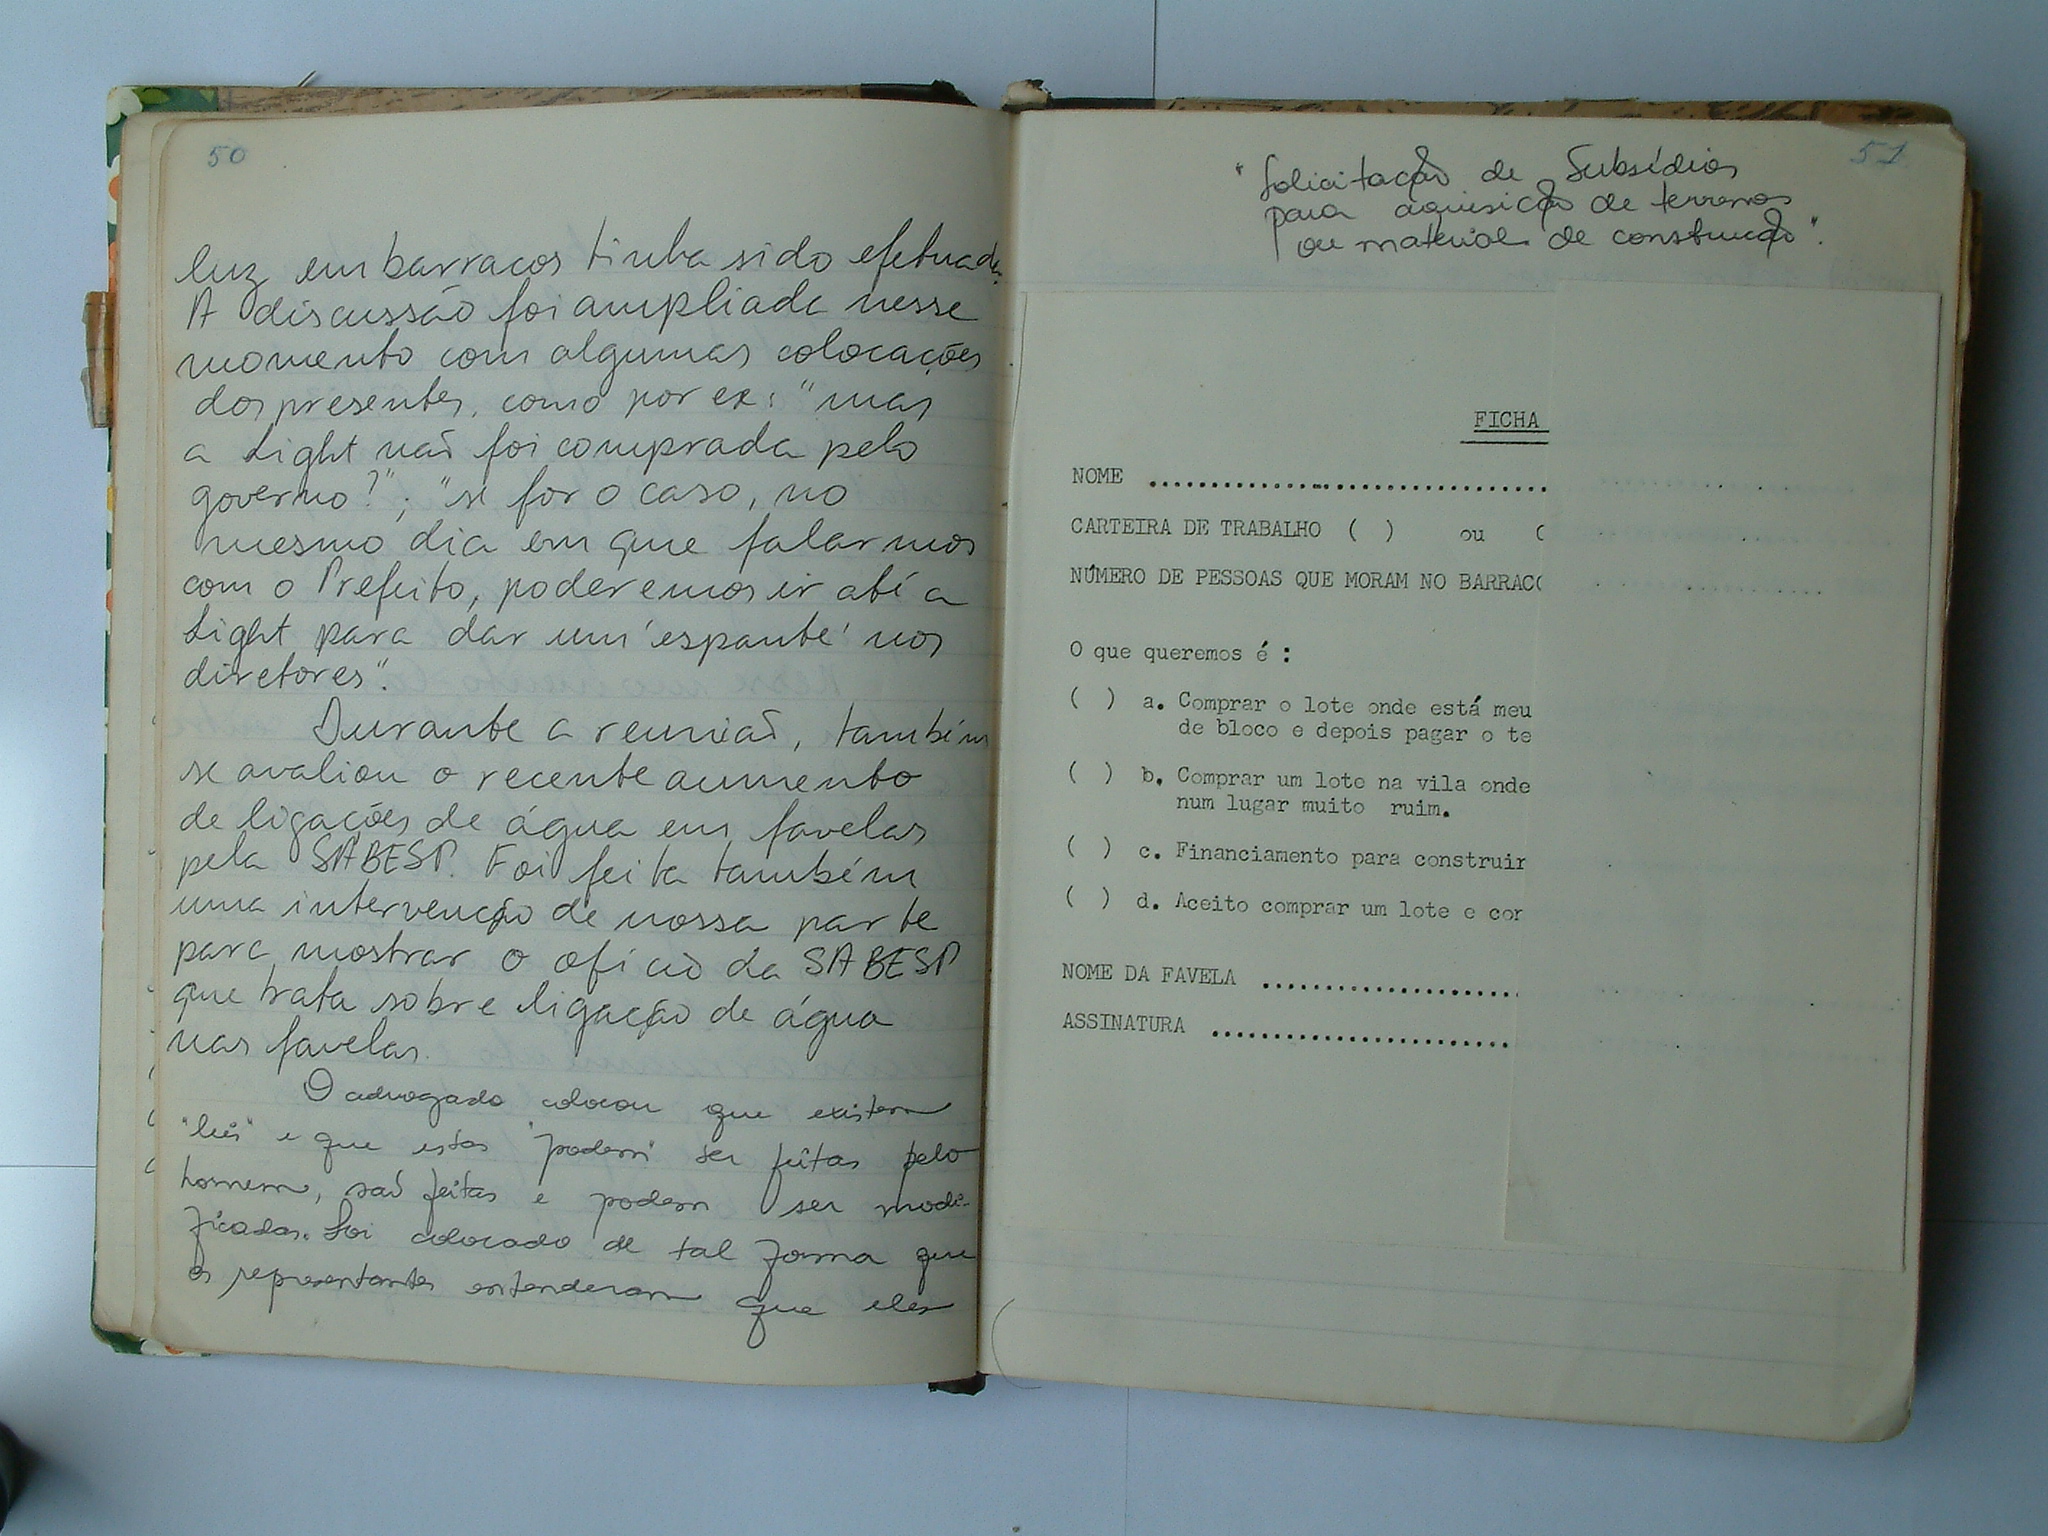 50
luz em barracos tinha sido efetuada.
A discussão foi ampliada nesse
momento com algumas colocações
dos presentes, como por ex: "mas
a Light não foi comprada pelo
governo?"; "se for o caso, no
mesmo dia em que falarmos
com o Prefeito, poderemos ir até a
Light para dar um 'espante' nos
diretores".
Durante a reunião, também
se avaliou o recente aumento
de ligações de água em favelas
pela SABESP. Foi feita também
uma intervenção de nossa parte
para mostrar o ofício da SABESP
que trata sobre ligação de água
nas favelas.
O advogado colocou que existem
"leis" e que estas "podem" ser feitas pelo
homem, são feitas e podem ser modi-
ficadas. Foi colocado de tal forma que
os representantes entenderam que eles
51
"Solicitação de Subsídios
para aquisição de terrenos
ou materiais de construção".
FICHA
NOME ........................................
CARTEIRA DE TRABALHO ( ) ou C
NÚMERO DE PESSOAS QUE MORAM NO BARRACO
O que queremos é :
( ) a. Comprar o lote onde está meu
de bloco e depois pagar o te
( ) b. Comprar um lote na vila onde
num lugar muito ruim.
( ) c. Financiamento para construir
( ) d. Aceito comprar um lote e con
NOME DA FAVELA .........................
ASSINATURA .............................